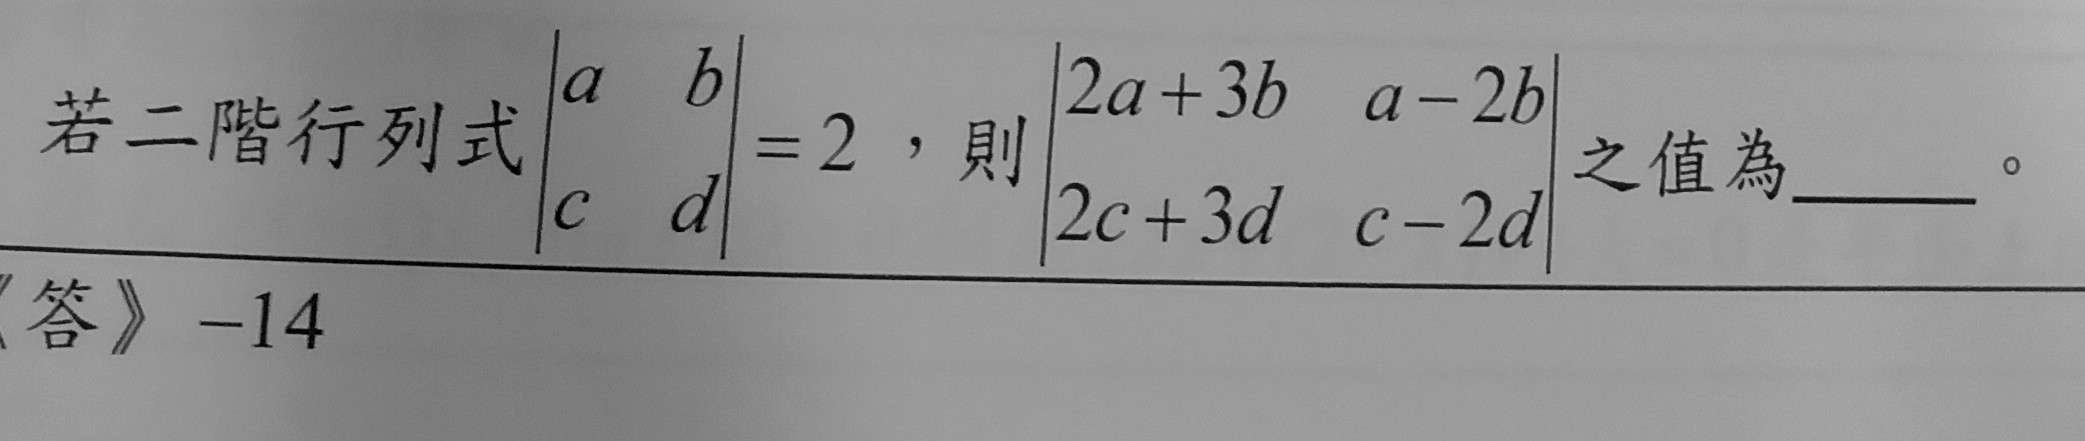 若二階行列式 $\begin{vmatrix} a & b \\ c & d \end{vmatrix} = 2$，則 $\begin{vmatrix} 2a+3b & a-2b \\ 2c+3d & c-2d \end{vmatrix}$ 之值為_____。
《答》 −14